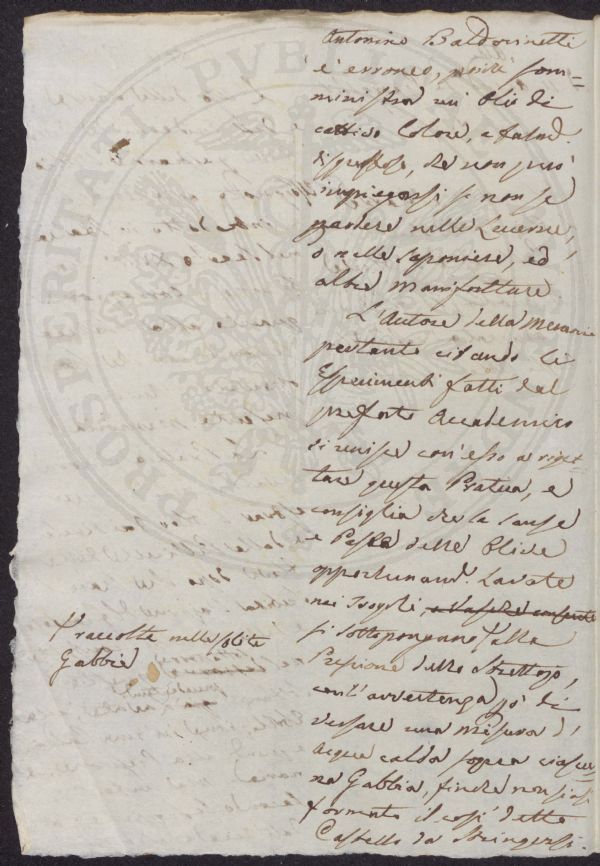 Antonino Baldovinetti
è erroneo, poiché som=
ministra un' Olio di
cattivo Colore, e talmd.
disgustoso, che non può
impiegarsi se non se
ardere nelle Lucerne,
o nelle saponiere, ed
altre manifatture
L'Autore della Memoria
pertanto citando li
Esperimenti fatti dal
prefato Accademico
si unisce con' esso a riget=
tare questa Pratica, e
consiglia che la sanse
e Pasta delle Olive
opportunamd. Lavate
nei Trogoli,
si sottopongano alla
Pressione dello Strettojo,
coll'avvertenza pò di
versare una misura d'
Acqua calda sopra ciascu=
na Gabbia, finché non siasi
formato il così detto
Castello da Stringersi.
raccolte nelle solite
Gabbie
PROSPERITATI PVBLICAE